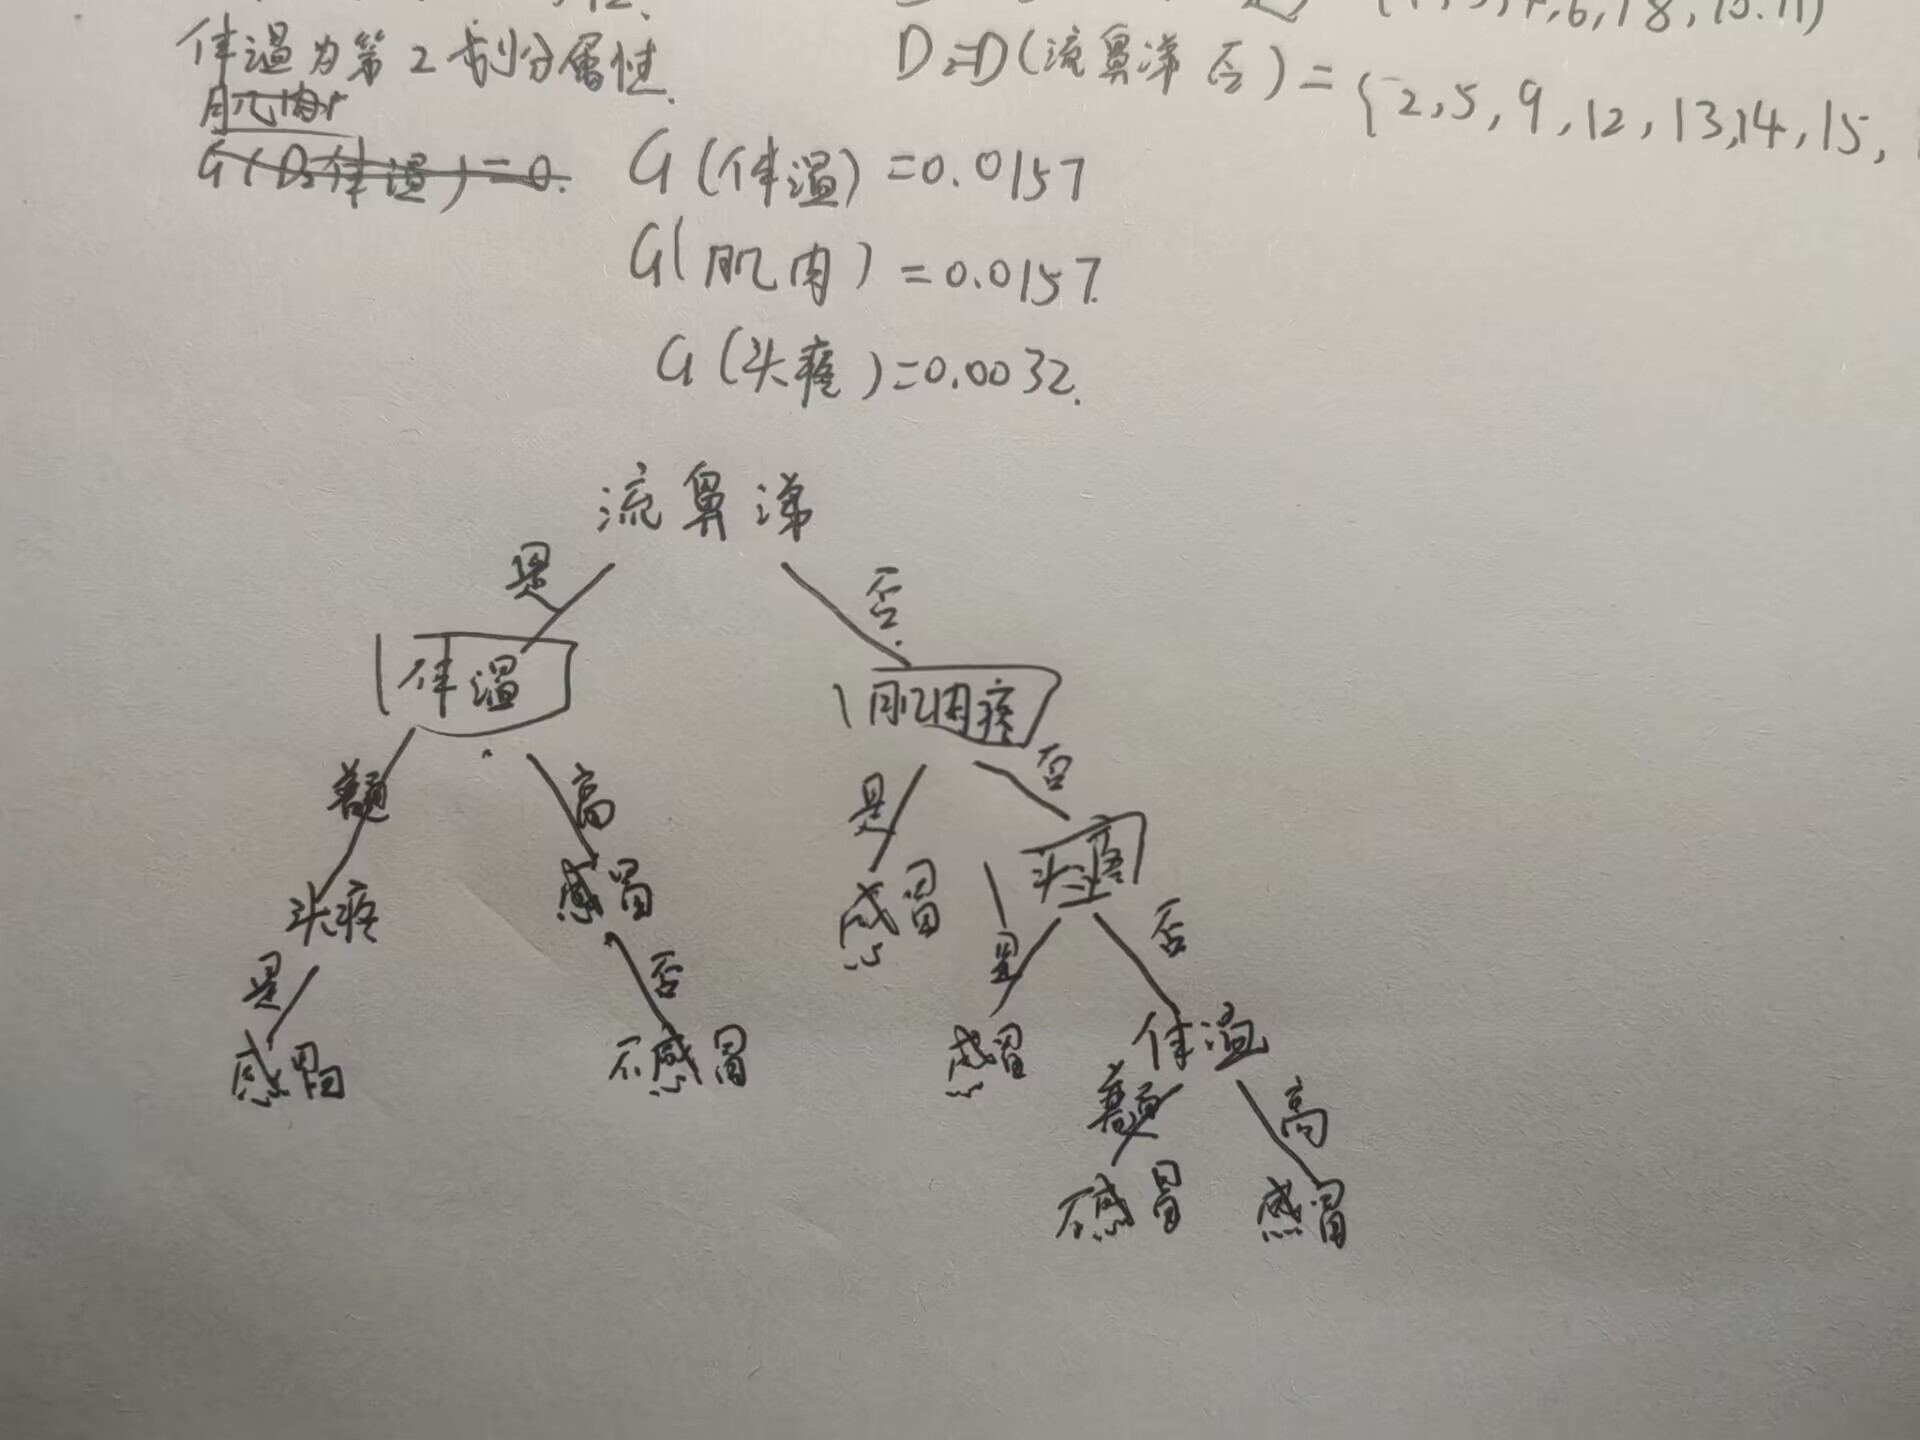 体温为第2划分属性.
肌肉
G(D₂体温)=0.
D₂=D(流鼻涕 否)={2,5,9,12,13,14,15,
G(体温)=0.0157
G(肌肉)=0.0157.
G(头疼)=0.0032.
流鼻涕
是 否
体温 肌肉疼
普通 高 是 否
头疼 感冒 感冒 头疼
是 否 是 否
感冒 不感冒 感冒 体温
普通 高
不感冒 感冒